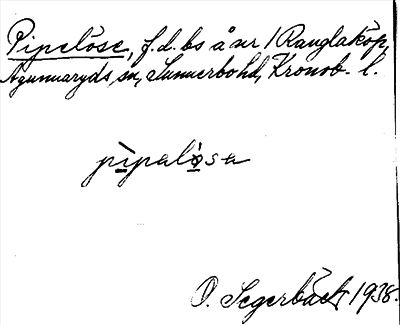 Pipelöse, f.d. bs å nr 1 Ranglaköp,
Agunnaryds sn, Sunnerbohd, Kronob. l.
pìpalòsa
O. Segerbäck 1938.